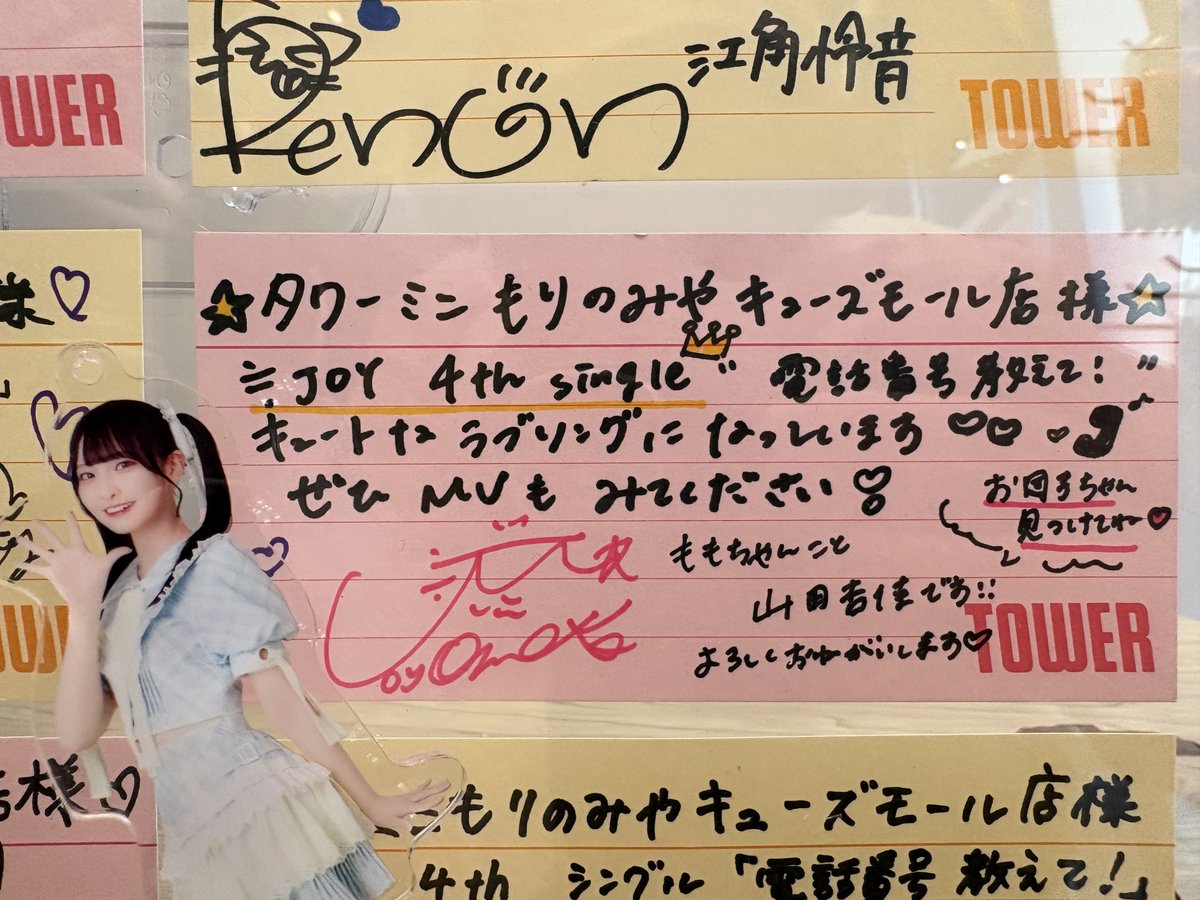 江角怜音
Renon
TOWER
OWER
☆タワーミニもりのみやキューズモール店様☆
≒JOY 4th single "電話番号教えて!"
キュートなラブソングになっています♡♡
ぜひMVもみてください♡
お団子ちゃん
見つけてね♡
ももちゃんこと
山田杏佳です!!
よろしくおねがいします♡
TOWER
様♡
店様♡
もりのみやキューズモール店様
4th シングル「電話番号教えて!」